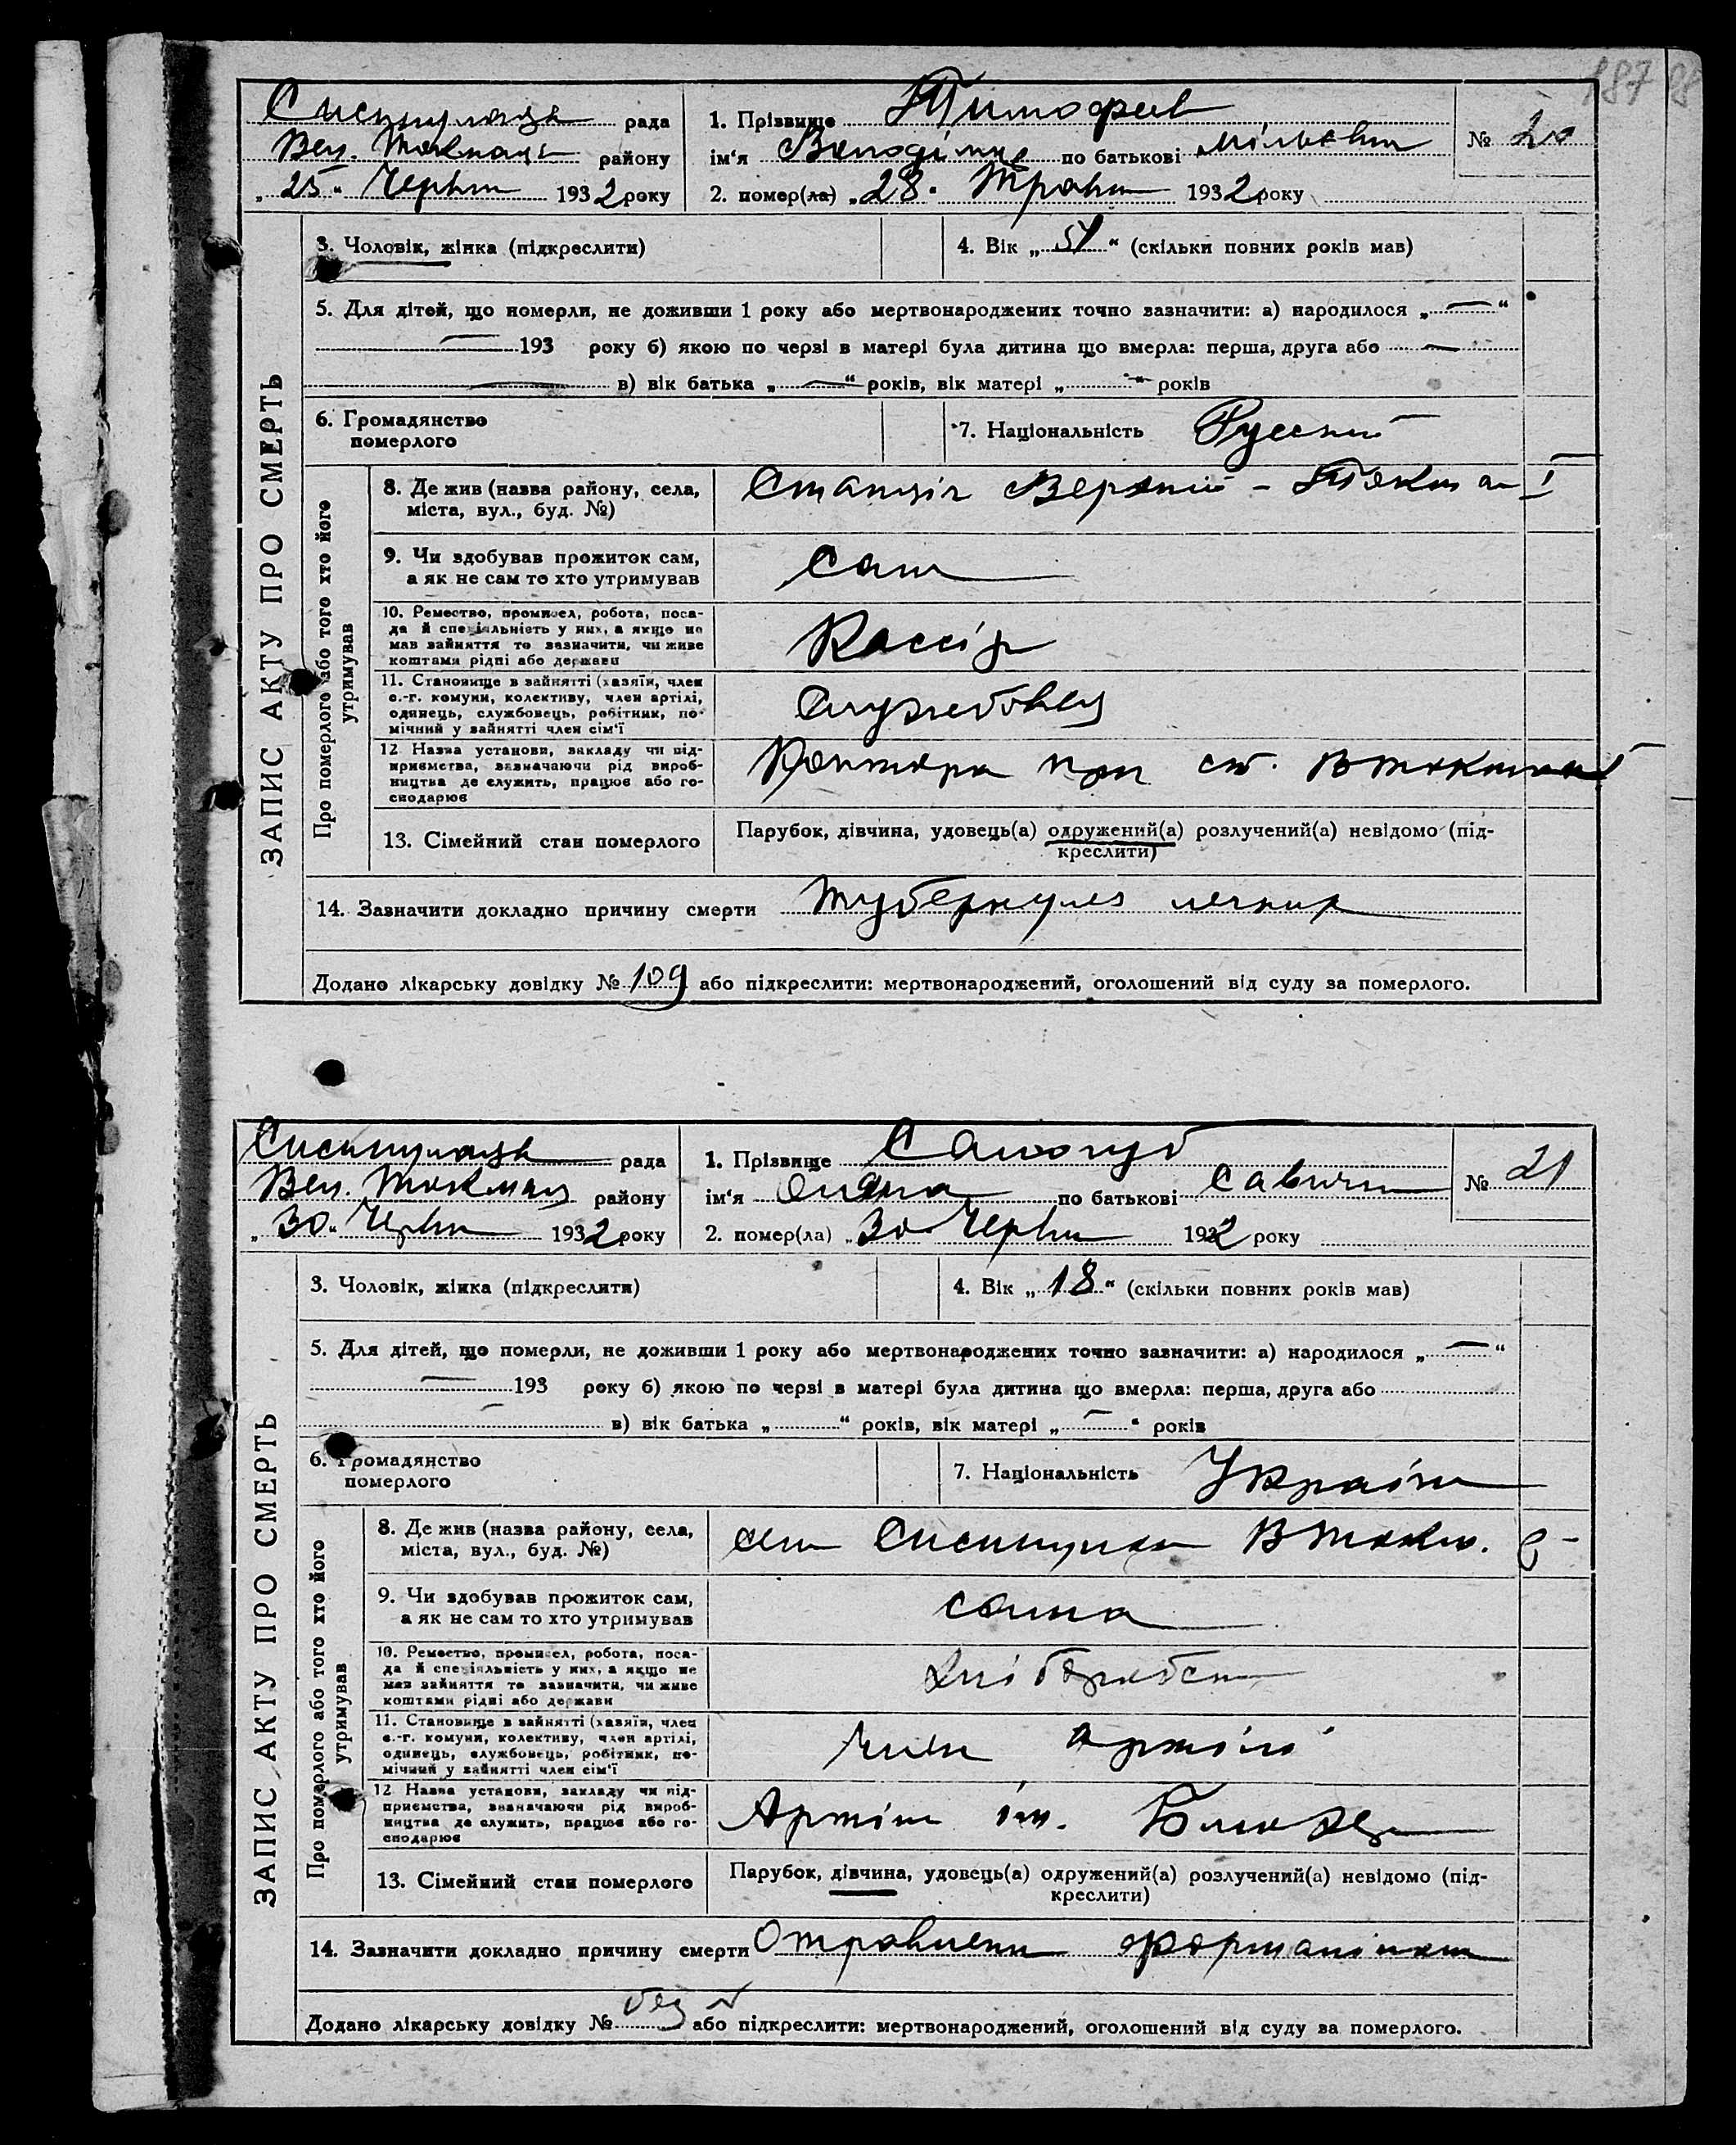 187 98
ЗАПИС АКТУ ПРО СМЕРТЬ
рада
Вел. Токмац. району
„25“ Червн 1932 року
1. Прізвище Тимофеев
ім‘я Володімир по батькові
2. помер(ла) „28“ Травн 1932 року
№ 20
3. Чоловік, жінка (підкреслити)
4. Вік „51“ (скільки повних років мав)
5. Для дітей, що номерли, не доживши 1 року або мертвонароджених точно зазначити: а) народилося „—“
— 193 року б) якою по черзі в матері була дитина що вмерла: перша, друга або —
— в) вік батька „—“ років, вік матері „—“ років
6. Громадянство
померлого
7. Національність Русский
Про померлого або того хто його
утримував
8. Де жив (назва району, села,
міста, вул., буд. №)
Станція Верхній-Токмак I
9. Чи здобував прожиток сам,
а як не сам то хто утримував
Сам
10. Ремество, промисел, робота, поса-
да й спеціяльність у них, а якщо не
мав зайняття то зазначити, чи живе
коштами рідні або держави
Кассір
11. Становище в зайнятті (хазяїн, член
с.-г. комуни, колективу, член артілі,
одинець, службовець, робітник, по-
мічний у зайнятті член сім‘ї
Службовец
12. Назва установи, закладу чи під-
приємства, зазначаючи рід вироб-
ництва де служить, працює або го-
сподарює
Контора при ст. В Токмак
13. Сімейний стан померлого
Парубок, дівчина, удовець(а) одружений(а) розлучений(а) невідомо (під-
креслити)
14. Зазначити докладно причину смерти Туберкулез легких
Додано лікарську довідку № 109 або підкреслити: мертвонароджений, оголошений від суду за померлого.
ЗАПИС АКТУ ПРО СМЕРТЬ
рада
Вел. Токмац. району
„30“ Червн 1932 року
1. Прізвище Самогуб
ім‘я по батькові Савични
2. помер(ла) „30“ Червн 1932 року
№ 21
3. Чоловік, жінка (підкреслити)
4. Вік „18“ (скільки повних років мав)
5. Для дітей, що померли, не доживши 1 року або мертвонароджених точно зазначити: а) народилося „—“
— 193 року б) якою по черзі в матері була дитина що вмерла: перша, друга або
— в) вік батька „ “ років, вік матері „—“ років
6. Громадянство
померлого
7. Національність Україн
Про померлого або того хто його
утримував
8. Де жив (назва району, села,
міста, вул., буд. №)
В Токм.
9. Чи здобував прожиток сам,
а як не сам то хто утримував
сама
10. Ремество, промисел, робота, поса-
да й спеціяльність у них, а якщо не
мав зайняття то зазначити, чи живе
коштами рідні або держави
Хліборобст
11. Становище в зайнятті (хазяїн, член
с.-г. комуни, колективу, член артілі,
одинець, службовець, робітник, по-
мічний у зайнятті член сім‘ї
Член Артілі
12. Назва установи, закладу чи під-
приємства, зазначаючи рід вироб-
ництва де служить, працює або го-
сподарює
Артіль ім. Блюхер
13. Сімейний стан померлого
Парубок, дівчина, удовець(а) одружений(а) розлучений(а) невідомо (під-
креслити)
14. Зазначити докладно причину смерти Отравлени формаліном
Додано лікарську довідку № без № або підкреслити: мертвонароджений, оголошений від суду за померлого.